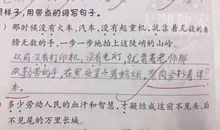 照样子,用带点的词写句子。
那时候没有火车、汽车,没有起重机,就靠着无数的
膀无数的手,一步一步地抬上这陡峭的山岭。
以前没有打印机,没有电灯,就靠着老师那
双勤劳的手,在黑夜里点着蜡烛,
多少劳动人民的血汗和智慧,才凝结成这前不见头、后
不见尾的万里长城。